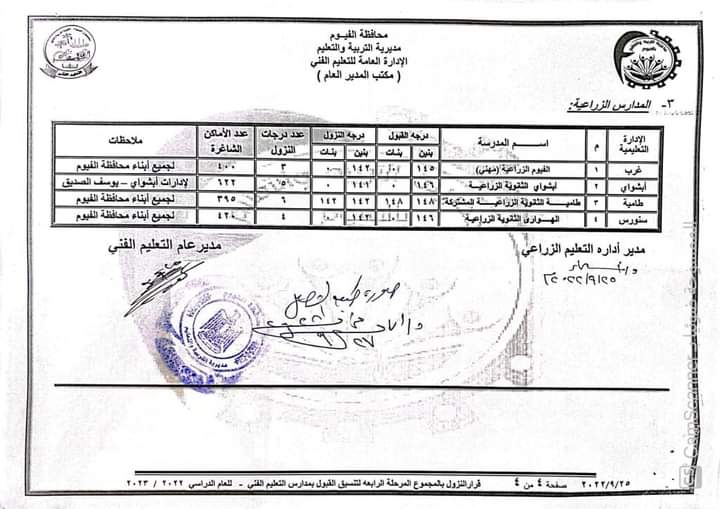 محافظة الفيوم
مديرية التربية والتعليم
الإدارة العامة للتعليم الفني
( مكتب المدير العام )
٣- المدارس الزراعية:
الإدارة التعليمية م اسم المدرسة درجه القبول درجه النزول عدد درجات النزول عدد الأماكن الشاغرة ملاحظات
بنين بنات بنين بنات
غرب ١ الفيوم الزراعية (مهني) ١٤٥ ٠ ١٤٢ ٠ ٣ ٤٠٠ لجميع أبناء محافظة الفيوم
أبشواي ٢ أبشواي الثانوية الزراعية ١٤٦ ٠ ١٤١ ٠ ٥ ٦٢٢ لإدارات أبشواي – يوسف الصديق
طامية ٣ طامية الثانوية الزراعية المشتركة ١٤٨ ١٤٨ ١٤٢ ١٤٢ ٦ ٣٩٥ لجميع أبناء محافظة الفيوم
سنورس ٤ الهوارى الثانوية الزراعية ١٤٦ ٠ ١٤٢ ٠ ٤ ٤٢٠ لجميع أبناء محافظة الفيوم
مدير أداره التعليم الزراعي
مدير عام التعليم الفني
٢٠٢٢/٩/٢٥
صورة طبق الأصل
مديرية التربية والتعليم
٢٠٢٢/٩/٢٥ صفحة ٤ من ٤ قرار النزول بالمجموع المرحلة الرابعه لتنسيق القبول بمدارس التعليم الفني - للعام الدراسي ٢٠٢٢ / ٢٠٢٣
CamScanner